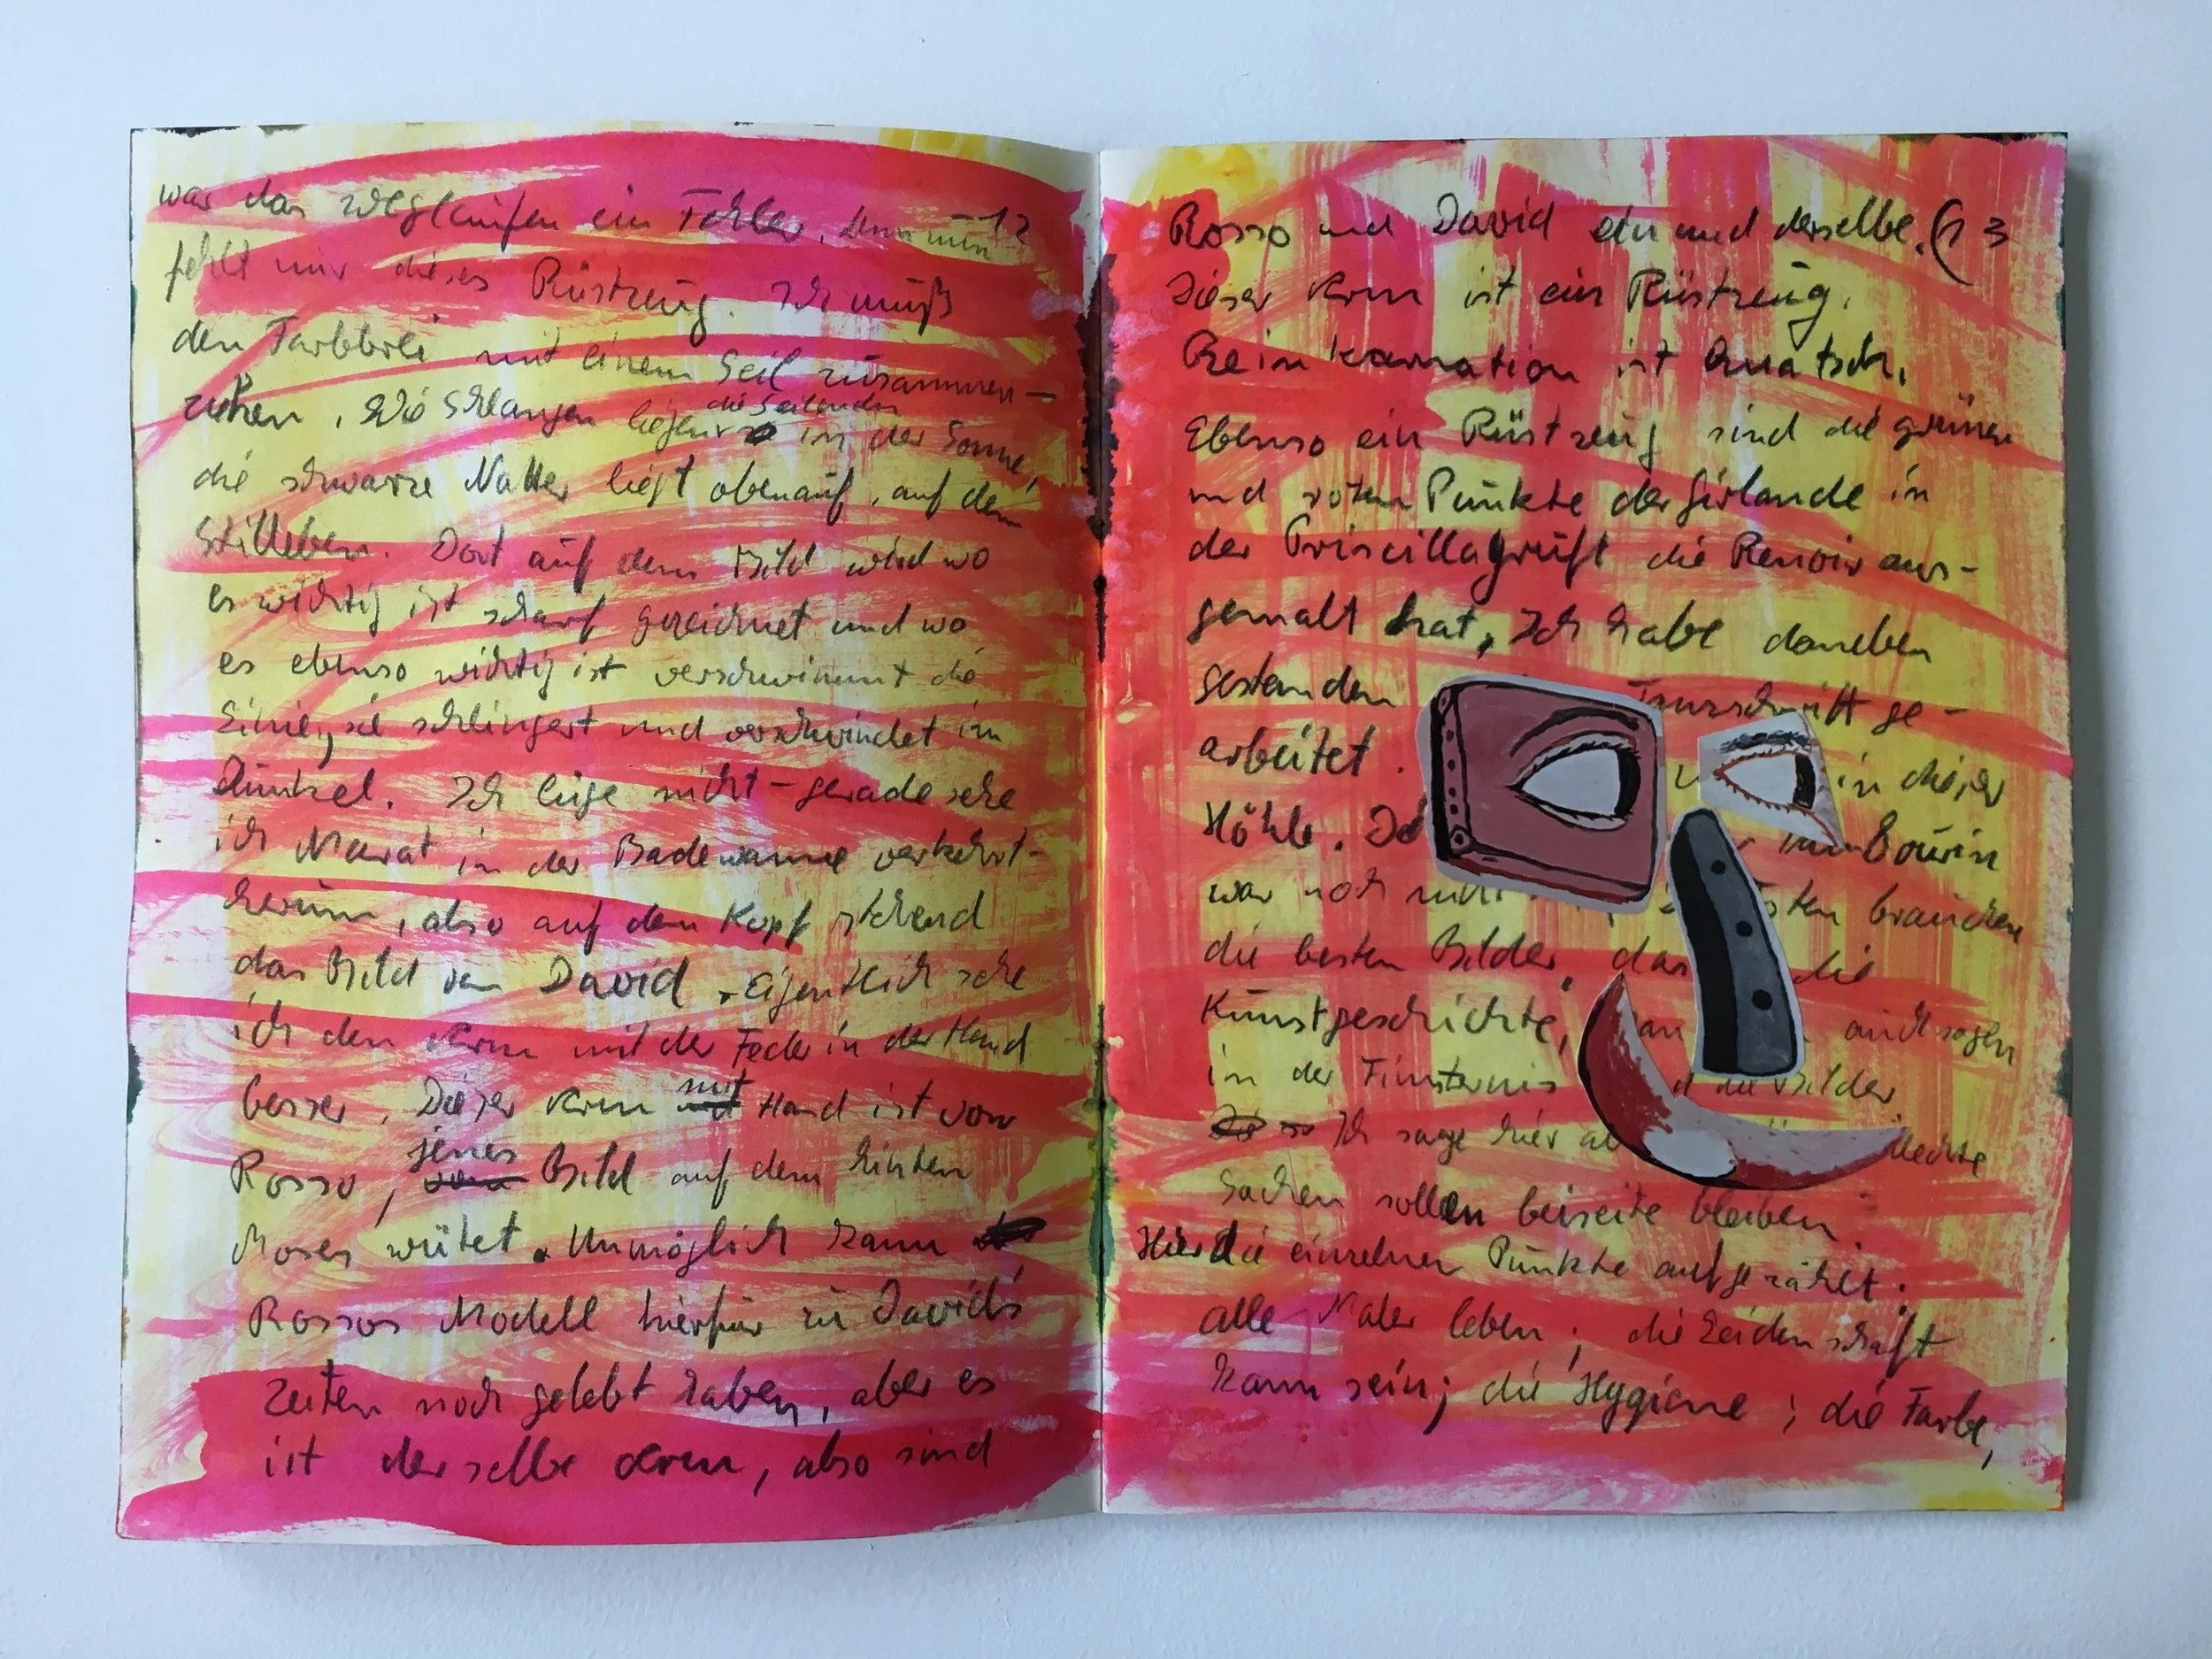 war das Weglaufen ein Fehler, denn nun 12
fehlt mir dieses Rüstzeug. Ich muß
den Farbbrei mit einem Seil zusammen-
ziehen. Wie Schlangen liegen die Seilenden in der Sonne,
die schwarze Natter liegt obenauf, auf dem
Stilleben. Dort auf dem Bild wird wo
es wichtig ist scharf gezeichnet und wo
es ebenso wichtig ist verschwimmt die
Linie, sie schlingert und verschwindet im
Dunkel. Ich lüge nicht - gerade sehe
ich Marat in der Badewanne verkehrt-
herum, also auf dem Kopf stehend
das Bild von David, eigentlich sehe
ich den Arm mit der Feder in der Hand
besser. Dieser Arm mit Hand ist von
Rosso, jenes Bild auf dem hinten
Moses wütet. Unmöglich kann
Rossos Modell hierfür zu David's
Zeiten noch gelebt haben, aber es
ist derselbe Arm, also sind
Rosso und David ein und derselbe. (13
Dieser Arm ist ein Rüstzeug.
Reinkarnation ist Quatsch.
Ebenso ein Rüstzeug sind die grünen
und roten Punkte der Girlande in
der Priscillagruft die Renoir aus-
gemalt hat. Ich habe daneben
gestanden ge-
arbeitet. in dieser
Höhle.
war noch brauchen
die besten Bilder, das die
Kunstgeschichte, auch sagen
in der Finsternis die Bilder.
Ich sage hier
Sachen sollen beiseite bleiben.
Hier die einzelnen Punkte aufgezählt:
alle Maler leben; die Leidenschaft
kann sein; die Hygiene; die Farbe,